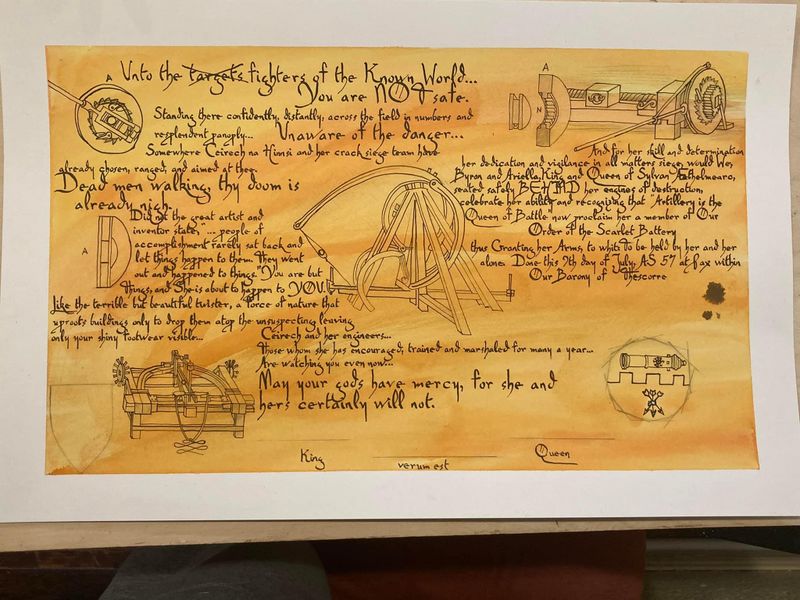 Unto the targets fighters of the Known World...
You are NOT safe.
Standing there confidently, distantly, across the field in numbers and
resplendent panoply... Unaware of the danger...
Somewhere Ceirech na Hinnsi and her crack siege team have
already chosen, ranged, and aimed at thee.
Dead men walking, thy doom is
already nigh.
Did not the great artist and
inventor state, "... people of
accomplishment rarely sat back and
let things happen to them. They went
out and happened to things." You are but
things, and She is about to happen to YOU.
Like the terrible but beautiful twister, a force of nature that
uproots buildings only to drop them atop the unsuspecting leaving
only your shiny footwear visible...
Ceirech and her engineers...
Those whom she has encouraged, trained and marshaled for many a year...
Are watching you even now...
May your gods have mercy, for she and
hers certainly will not.
And for her skill and determination
her dedication and vigilance in all matters siege, would We,
Byron and Ariella, King and Queen of Sylvan Æthelmearc,
seated safely BEHIND her engines of destruction,
celebrate her ability and recognizing that "Artillery is the
Queen of Battle" now proclaim her a member of Our
Order of the Scarlet Battery
thus Granting her Arms, to whit: To be held by her and her
alone. Done this 9th day of July, AS 57 at Pax within
Our Barony of Thescorre
King
verum est
Queen
A
A
A
N